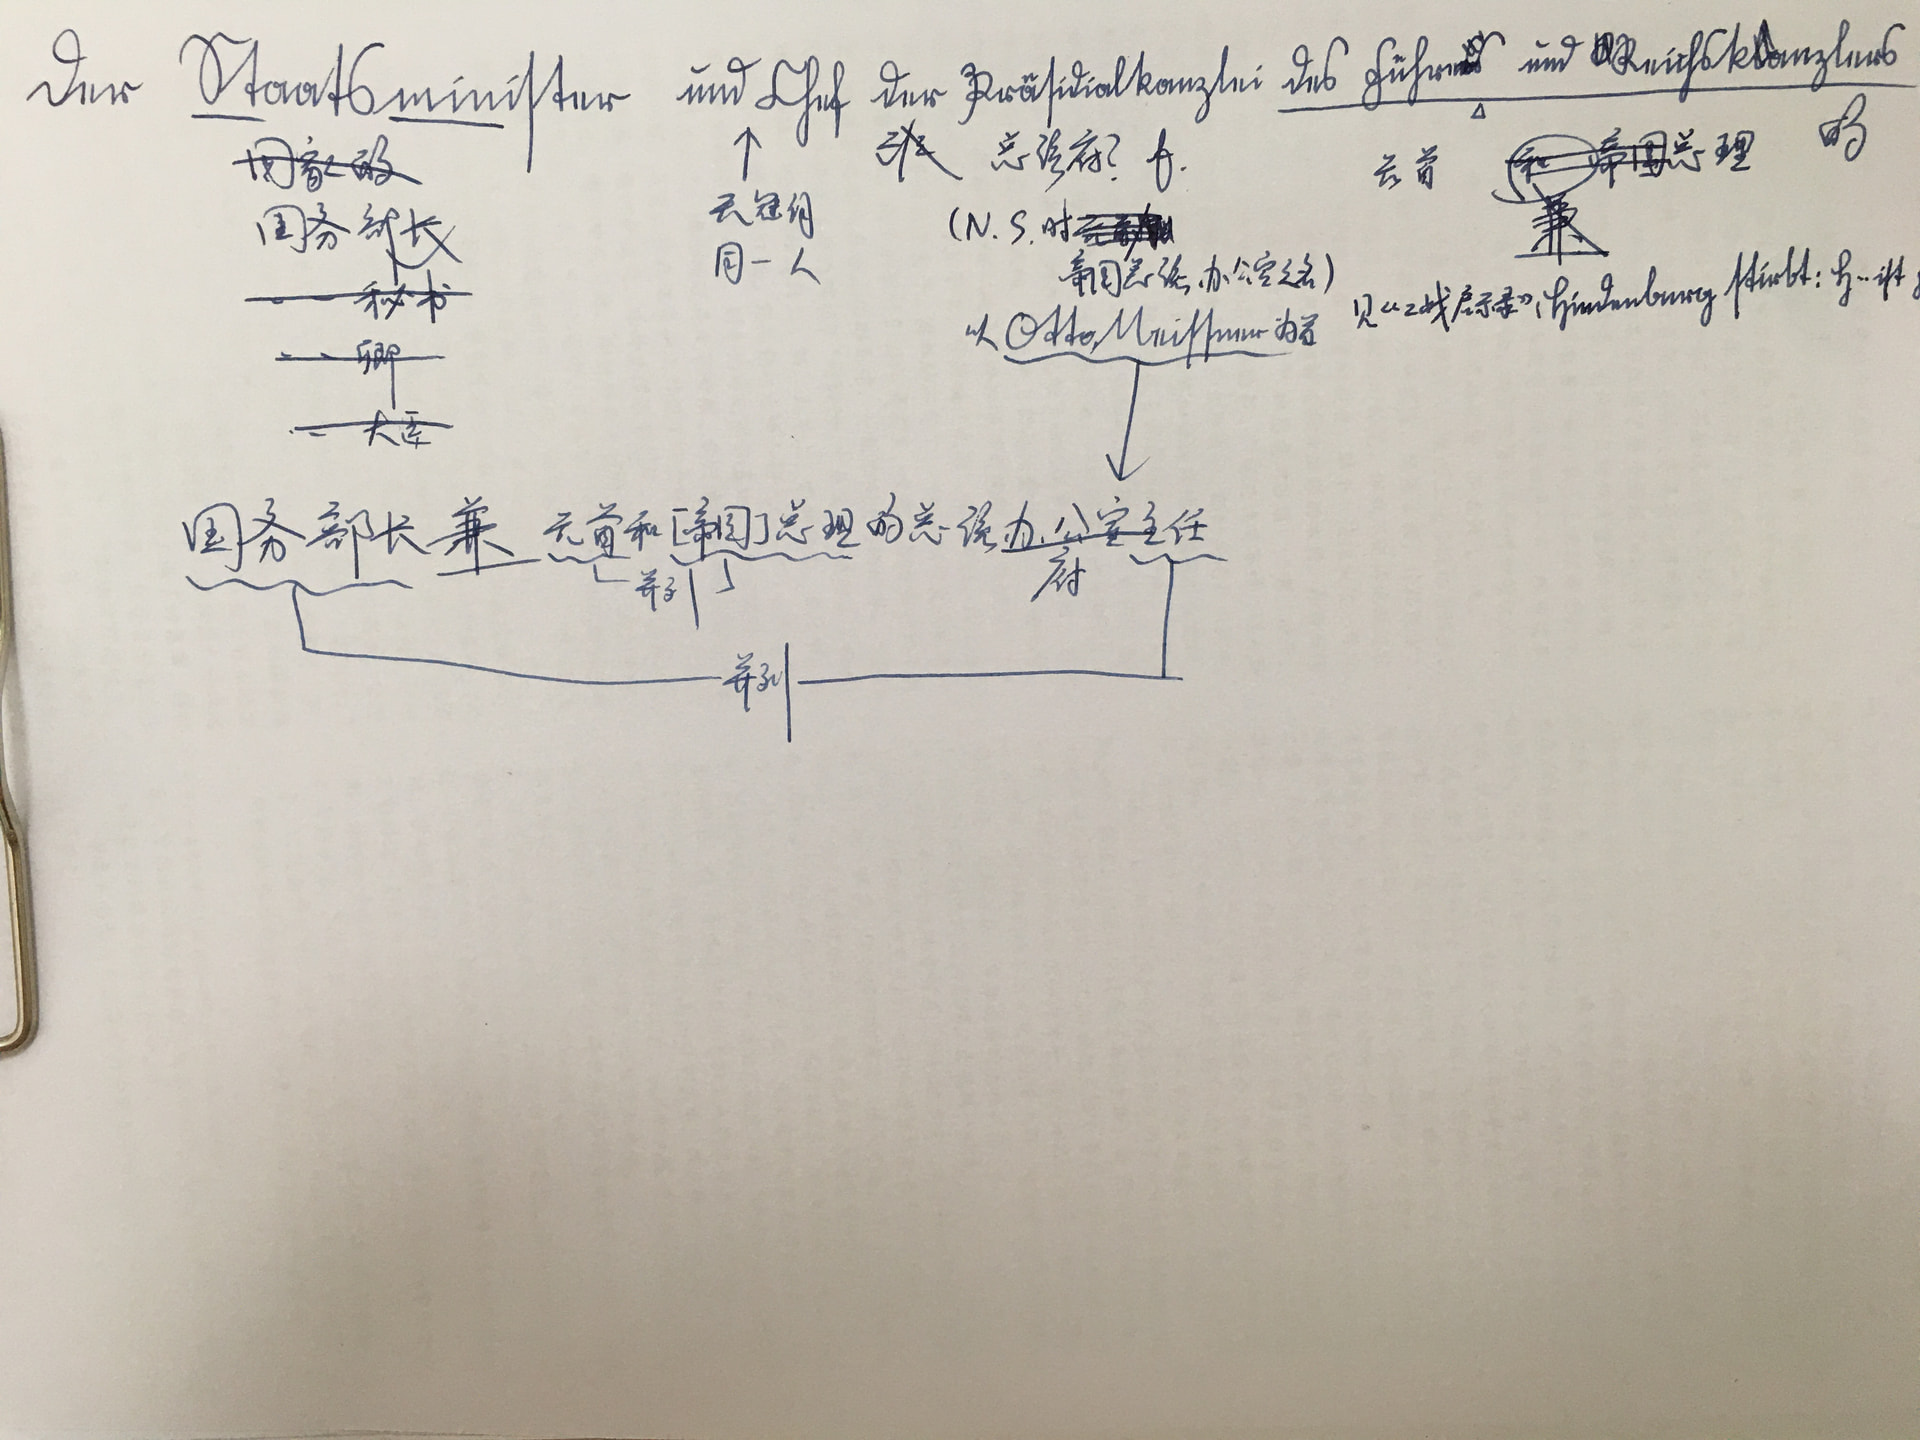 Der Staatsminister und Chef der Präsidialkanzlei des Führers und Reichskanzlers
国家的
总统府? f.
元首 和 帝国总理 的
国务部长
无冠词
兼
同一人
(N.S.时
秘书
帝国总统办公室之名)
卿
以 Otto Meissner 为首
见《二战启示录》, Hindenburg stirbt: H... ist
大臣
国务部长兼元首和[帝国]总理的总统办公室主任
并列
府
并列